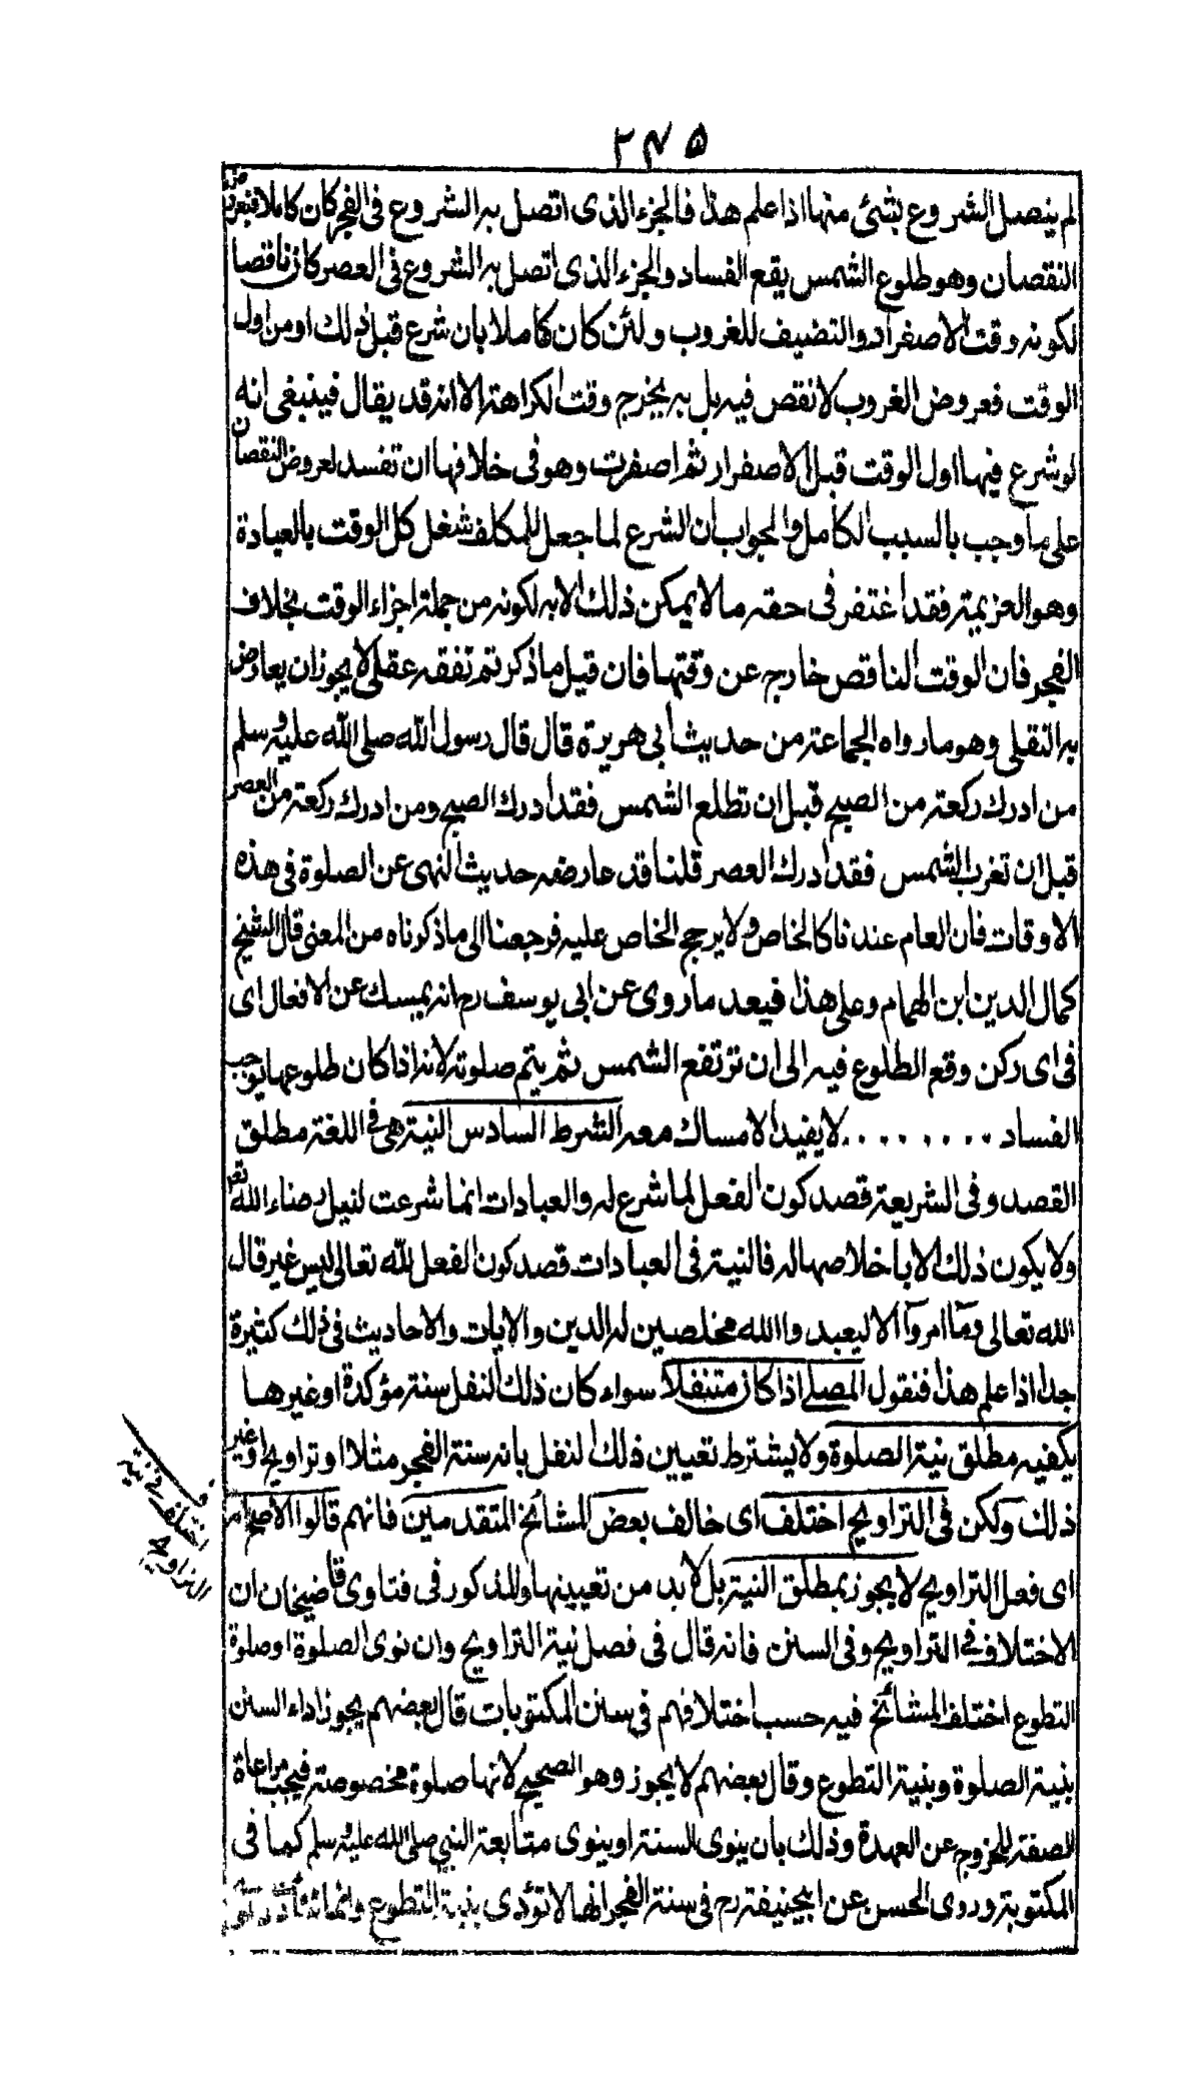 ۲۴۵
لم يتصل الشروع بشئ منها اذا علم هذا فالجزء الذى اتصل به الشروع فى الفجر كان كاملا فبعروض
النقصان وهو طلوع الشمس يقع الفساد والجزء الذى اتصل به الشروع فى العصر كان ناقصا
لكونه وقت الاصفرار والتضيف للغروب ولئن كان كاملا بان شرع قبل ذلك او من اول
الوقت فعروض الغروب لا نقص فيه بل به يخرج وقت الكراهة الا انه قد يقال فينبغى انه
لو شرع فيها اول الوقت قبل الاصفرار ثم اصفرت وهو فى خلافها ان تفسد لعروض النقصان
على ما وجب بالسبب الكامل والجواب ان الشرع لما جعل للمكلف شغل كل الوقت بالعبادة
وهو العزيمة فقد اغتفر فى حقه ما لا يمكن ذلك الا به لكونه من جملة اجزاء الوقت بخلاف
الفجر فان الوقت الناقص خارج عن وقتها فان قيل ما ذكرتم تفقه عقلى لا يجوز ان يعارض
به النقلى وهو ما رواه الجماعة من حديث ابى هريرة قال قال رسول الله صلى الله عليه وسلم
من ادرك ركعة من الصبح قبل ان تطلع الشمس فقد ادرك الصبح ومن ادرك ركعة من العصر
قبل ان تغرب الشمس فقد ادرك العصر قلنا قد عارضه حديث النهى عن الصلوة فى هذه
الاوقات فان العام عندنا كالخاص ولا يرجح الخاص عليه فرجعنا الى ما ذكرناه من المعنى قال الشيخ
كمال الدين ابن الهمام وعلى هذا فيبعد ما روى عن ابى يوسف رح انه يمسك عن الافعال اى
فى اى ركن وقع الطلوع فيه الى ان ترتفع الشمس ثم يتم صلوته لانه اذا كان طلوعها يوجب
الفساد ......... لا يفيد الامساك معه الشرط السادس النية هى فى اللغة مطلق
القصد وفى الشريعة قصد كون الفعل لما شرع له والعبادات انما شرعت لنيل رضاء الله تع
ولا يكون ذلك الا باخلاصها له فالنية فى العبادات قصد كون الفعل لله تعالى ليس غير قال
الله تعالى وما امروا الا ليعبدوا الله مخلصين له الدين والايات والاحاديث فى ذلك كثيرة
جدا اذا علم هذا فنقول المصلى اذا كان متنفلا سواء كان ذلك النفل سنة مؤكدة او غيرها
يكفيه مطلق نية الصلوة ولا يشترط تعيين ذلك النفل بانه سنة الفجر مثلا او تراويح او غير
ذلك ولكن فى التراويح اختلف اى خالف بعض المشائخ المتقدمين فانهم قالوا الاصح انها
اى فعل التراويح لا يجوز بمطلق النية بل لا بد من تعيينها والمذكور فى فتاوى قاضيخان ان
الاختلاف فى التراويح وفى السنن فانه قال فى فصل نية التراويح وان نوى الصلوة او صلوة
التطوع اختلف المشائخ فيه حسب اختلافهم فى سنن المكتوبات قال بعضهم يجوز اداء السنن
بنية الصلوة وبنية التطوع وقال بعضهم لا يجوز وهو الصحيح لانها صلوة مخصوصة فيجب مراعاة
الصفة للخروج عن العهدة وذلك بان ينوى السنة او ينوى متابعة النبى صلى الله عليه وسلم كما فى
المكتوبة وروى الحسن عن ابيحنيفة رح فى سنة الفجر انها لا تؤدى بنية التطوع وانما
اختلف فى نية
التراويح